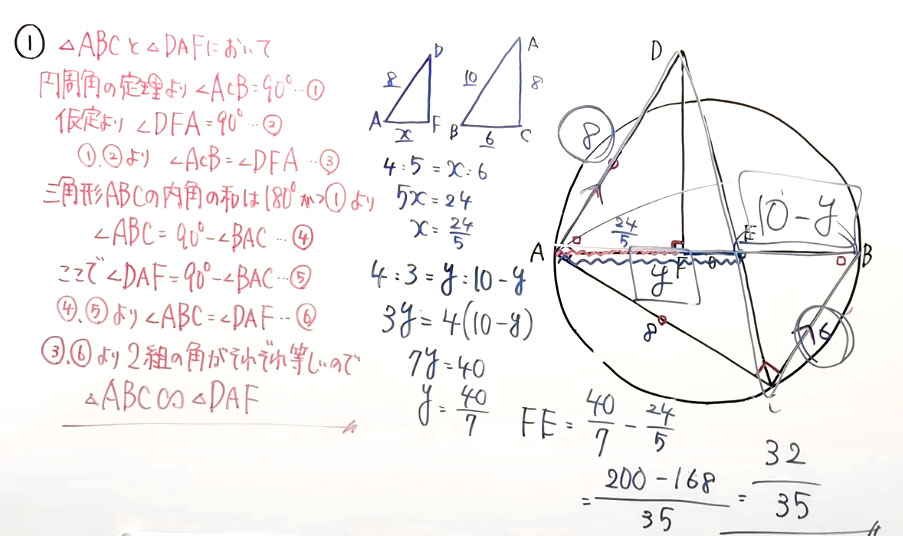 ① △ABCと△DAFにおいて
円周角の定理より∠ACB=90°…①
仮定より ∠DFA=90°…②
①,②より ∠ACB=∠DFA…③
三角形ABCの内角の和は180°かつ①より
∠ABC=90°-∠BAC…④
ここで∠DAF=90°-∠BAC…⑤
④,⑤より∠ABC=∠DAF…⑥
③,⑥より2組の角がそれぞれ等しいので
△ABC∽△DAF
D
8
A
x
F
A
10
8
B
6
C
4:5=x:6
5x=24
x=24/5
4:3=y:10-y
3y=4(10-y)
7y=40
y=40/7
D
8
24/5
10-y
A
E
F
B
y
8
6
C
FE=40/7-24/5
=200-168/35=32/35